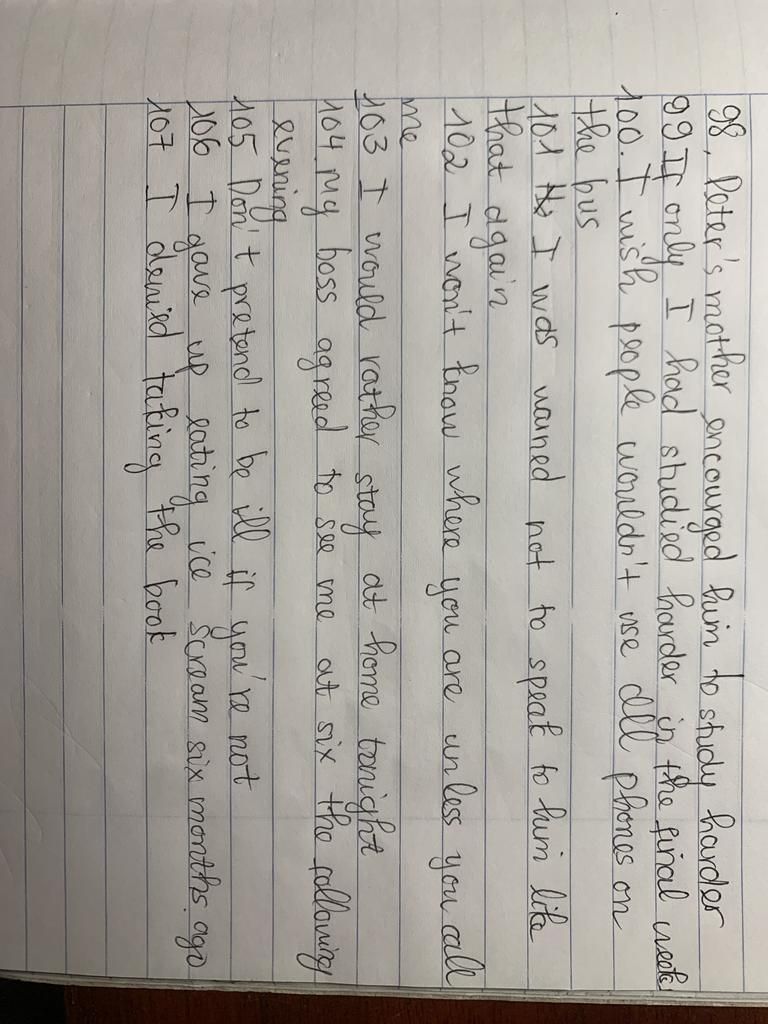 98, Peter's mother encourged him to study harder
99 If only I had studied harder in the final week
100. I wish people wouldn't use cell phones on
the bus
101 I was warned not to speak to him like
that again
102 I won't know where you are unless you call
me
103 I would rather stay at home tonight
104 My boss agreed to see me at six the following
evening
105 Don't pretend to be ill if you're not
106 I gave up eating ice scream six months ago
107 I denied taking the book